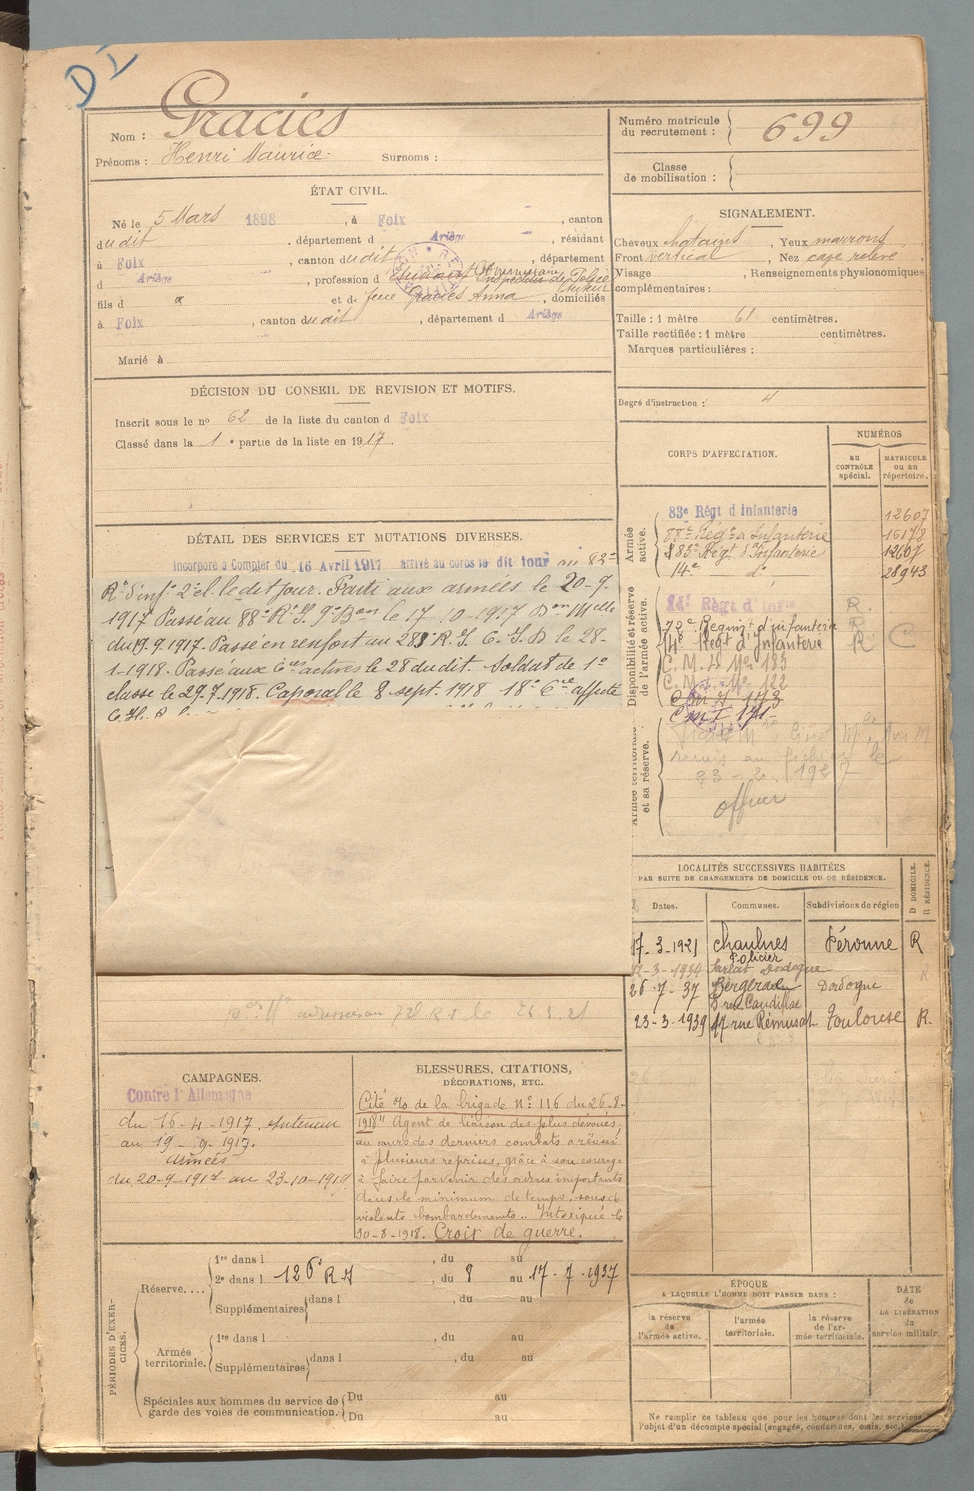 DI
Nom : Gracies
Prénoms : Henri Maurice Surnoms :
Numéro matricule du recrutement : 699
Classe de mobilisation :
ÉTAT CIVIL.
Né le 5 Mars 1898, à Foix, canton
dudit, département d Ariège, résidant
à Foix, canton dudit, département
d Ariège, profession d
fils d x et de feue Gracies Anna, domiciliés
à Foix, canton dudit, département d Ariège
Marié à
SIGNALEMENT.
Cheveux chatains, Yeux marrons,
Front vertical, Nez cave relevé
Visage, Renseignements physionomiques
complémentaires :
Taille : 1 mètre 61 centimètres.
Taille rectifiée : 1 mètre centimètres.
Marques particulières :
Degré d'instruction : 4
DÉCISION DU CONSEIL DE REVISION ET MOTIFS.
Inscrit sous le no 62 de la liste du canton d Foix
Classé dans la 1e partie de la liste en 1917.
DÉTAIL DES SERVICES ET MUTATIONS DIVERSES.
Incorporé à Compter du 16 Avril 1917 arrivé au corps le dit jour au 83e
Rt d'inf. 2e cl. le dit jour. Parti aux armées le 20-9-
1917 Passé au 88e R.I. 9e Bon le 17-10-1917 Don Mlle
du 19.9.1917. Passé en renfort au 283 R.I. C.I.D le 28-
1-1918. Passé aux Cies actives le 28 dudit. Soldat de 1e
classe le 29.7.1918. Caporal le 8 sept. 1918 18e Cie affecté
adressé au 72e R.I le
CORPS D'AFFECTATION.
NUMÉROS
AU CONTRÔLE spécial.
MATRICULE ou au répertoire.
Armée active.
83e Régt d'Infanterie 12607
88e Régt d'Infanterie 16178
283e Régt d'Infanterie 12607
14e do 28943
Disponibilité et réserve de l'armée active.
14e Régt d'Inf R.
72e Regimt d'infanterie R
14e Régt d'Infanterie R
C. M. I. No 183
C. M. No 122
173
C M I 171
Armée territoriale et sa réserve.
23-2-1927
offier
LOCALITÉS SUCCESSIVES HABITÉES
PAR SUITE DE CHANGEMENTS DE DOMICILE OU DE RÉSIDENCE.
Dates. Communes. Subdivisions de région
D DOMICILE. R RÉSIDENCE.
17-3-1921 Chaulnes Péronne R
Policier
12-3-1934 Sarlat Dordogne
26-7-37 Bergerac Dordogne
rue Candillac
23-3-1939 17 rue Rémusat Toulouse R.
CAMPAGNES.
Contre l'Allemagne
du 16-4-1917, intérieur
au 19-9-1917.
armées
du 20-9-1917 au 23-10-1919
BLESSURES, CITATIONS,
DÉCORATIONS, ETC.
Cité à l'o de la brigade No 116 du 26-8-
1918 "Agent de liaison des plus dévoués,
au cours des derniers combats a réussi
à plusieurs reprises, grâce à son courage
à faire parvenir des ordres importants
dans le minimum de temps, sous de
violents bombardements". Intoxiqué le
30-8-1918. Croix de guerre.
PÉRIODES D'EXERCICES.
Réserve....
1re dans l , du au
2e dans l 126e R I, du 8 au 17-7-1937
Supplémentaires dans l , du au
Armée territoriale.
1re dans l , du au
Supplémentaires dans l , du au
Spéciales aux hommes du service de garde des voies de communication.
Du au
Du au
ÉPOQUE
A LAQUELLE L'HOMME DOIT PASSER DANS :
la réserve de l'armée active.
l'armée territoriale.
la réserve de l'armée territoriale.
DATE de LA LIBÉRATION du service militaire
Ne remplir ce tableau que pour les hommes dont les services
l'objet d'un décompte spécial (engagés, condamnés, omis, etc.)